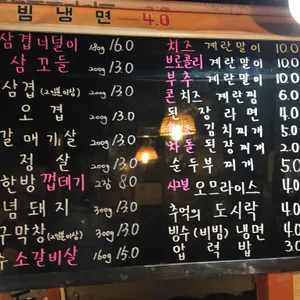 빔냉면 4.0
삼겹너덜이 180g 16.0
삼꼬들 200g 13.0
삼겹(2인분이상) 200g 13.0
오겹 200g 13.0
갈매기살 200g 13.0
정살 200g 13.0
한방껍데기 2장 8.0
념돼지 300g 13.0
구막창(2인분이상) 300g 13.0
소갈비살 160g 15.0
치즈 계란말이 10.0
브로콜리 계란말이 10.0
부추 계란말이 10.0
콘치즈 계란찜 6.0
된장라면 4.0
김치찌개 5.0
차돌 된장찌개 2.0
순두부찌개 5.0
오므라이스 4.0
추억의 도시락 4.0
빙수(비빔)냉면 4.0
압력밥 3.0